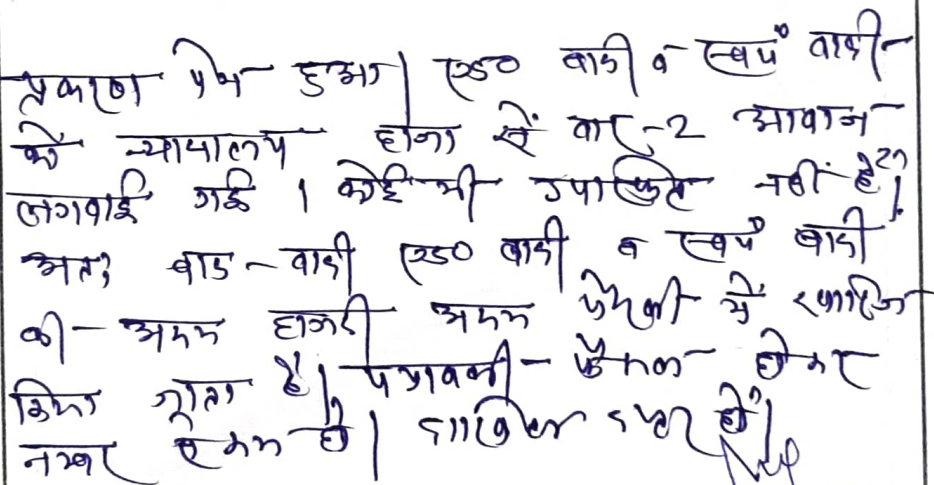 प्रकरण पेश हुआ। एड० वादी व स्वयं वादी
को न्यायालय होजा में बार-2 आवाज
लगवाई गई । कोई भी उपस्थित नहीं है।
अतः वाद-वादी एड० वादी व स्वयं वादी
की अदम हाजरी अदम पैरवी में खारिज
किया जाता है। पत्रावली फैसल होकर
नम्बर से कम हो। दाखिल दफ्तर हो।